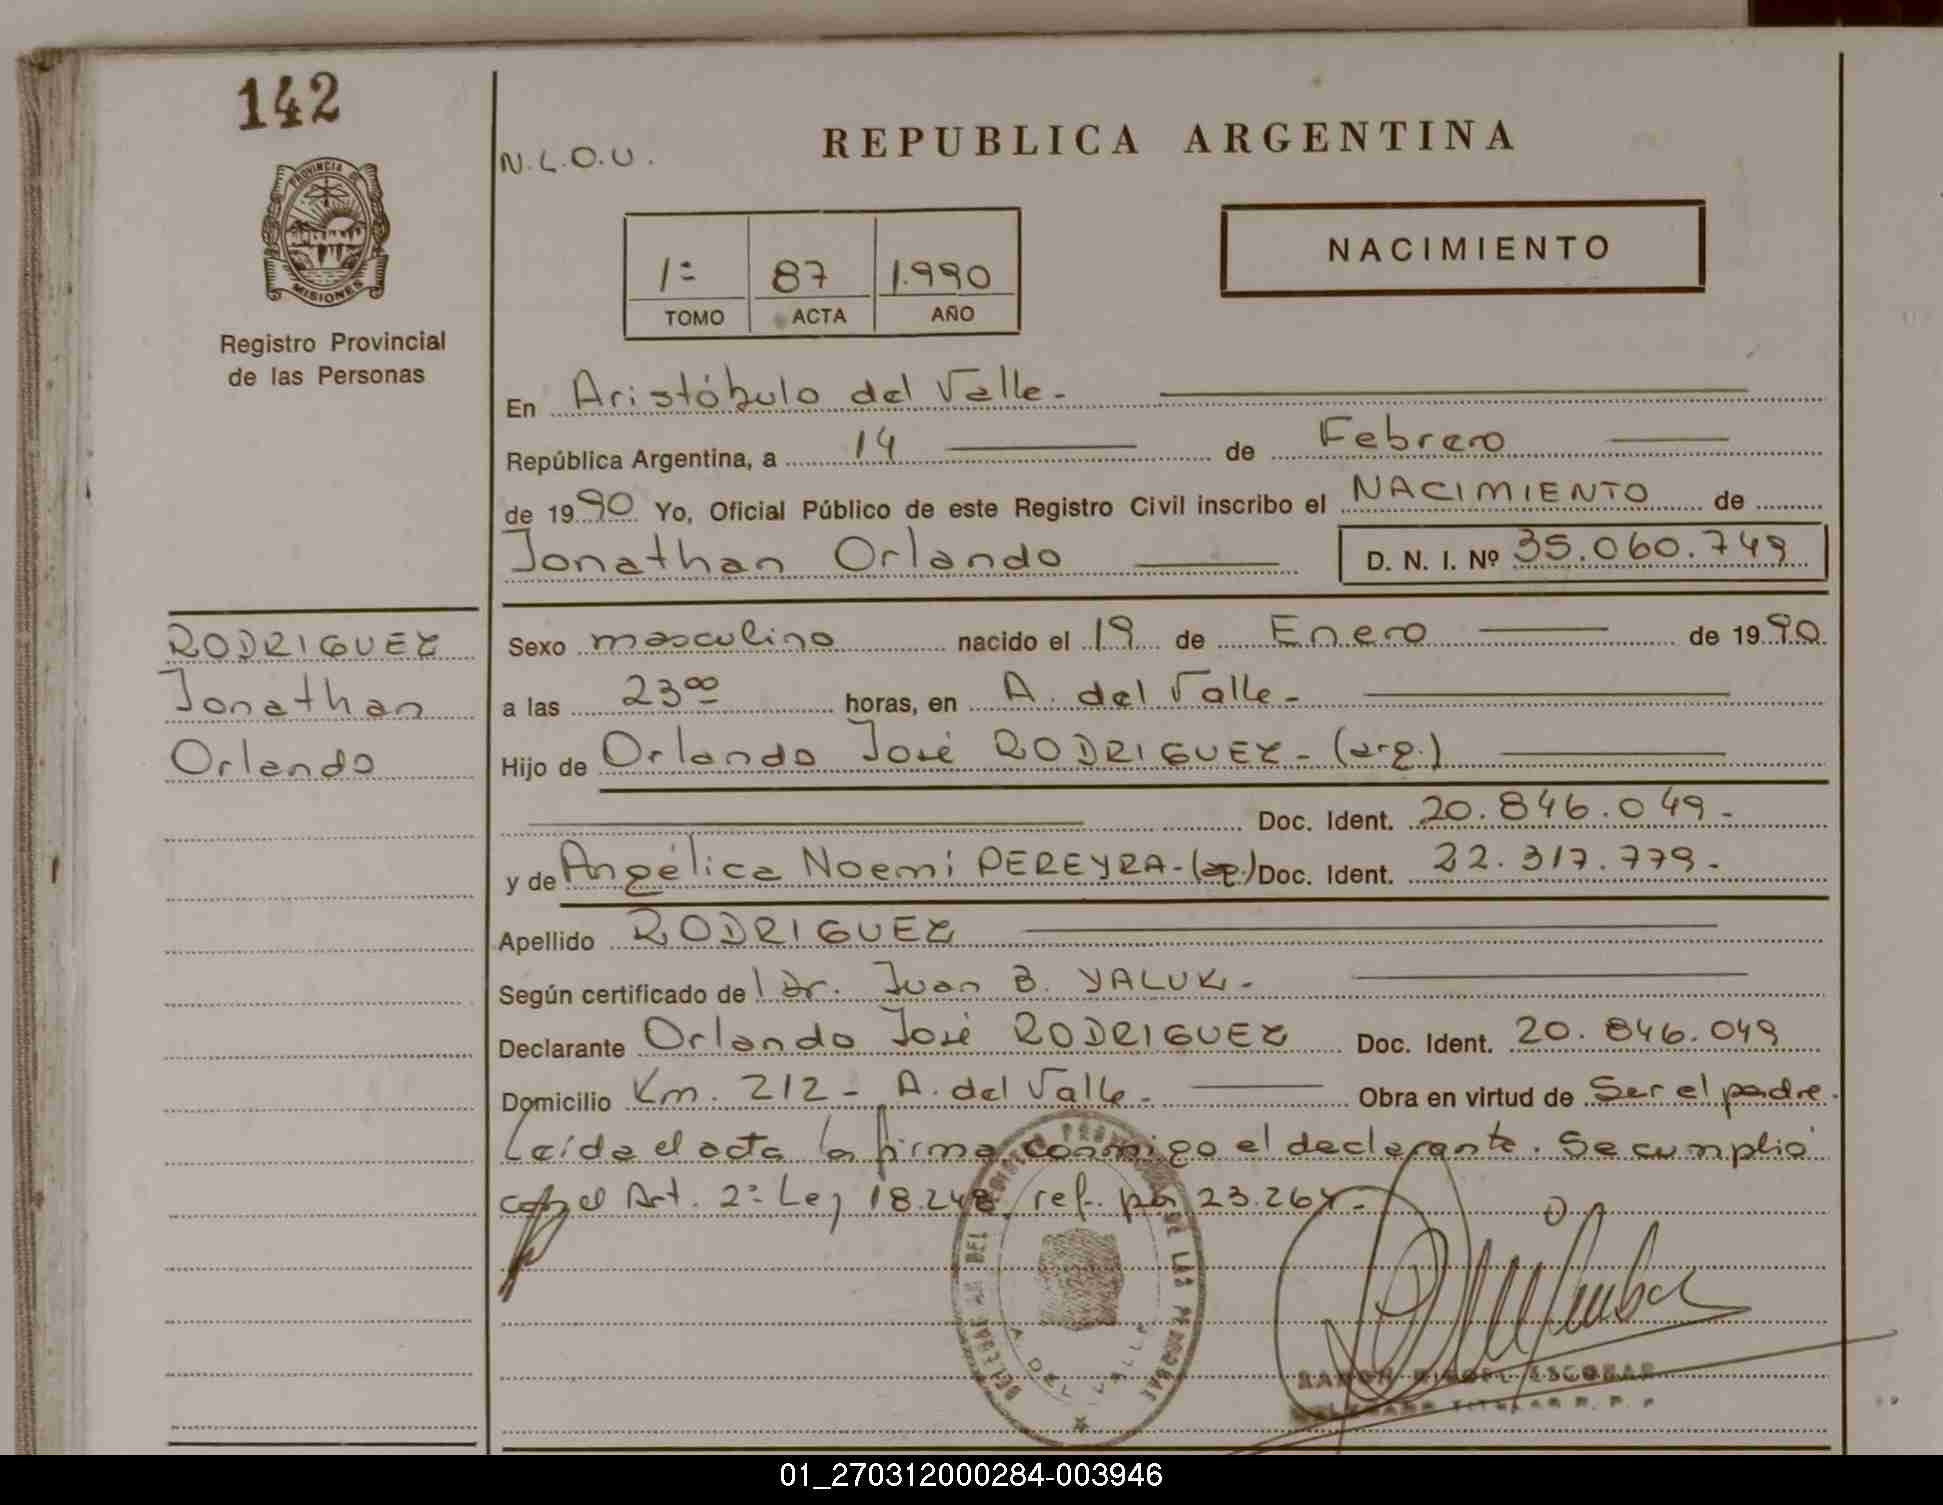 142
PROVINCIA DE
MISIONES
Registro Provincial
de las Personas
RODRIGUEZ
Jonathan
Orlando
N.L.O.U.
REPUBLICA ARGENTINA
1º 87 1.990
TOMO ACTA AÑO
NACIMIENTO
En Aristóbulo del Valle.-
República Argentina, a 14 de Febrero
de 1990 Yo, Oficial Público de este Registro Civil inscribo el NACIMIENTO de
Jonathan Orlando D. N. I. Nº 35.060.749
Sexo masculino nacido el 19 de Enero de 1990.
a las 23⁰⁰ horas, en A. del Valle.-
Hijo de Orlando José RODRIGUEZ.- (arg.)
Doc. Ident. 20.846.049.-
y de Angélica Noemi PEREYRA.-(ar.) Doc. Ident. 22.317.779.-
Apellido RODRIGUEZ
Según certificado del Dr. Juan B. YALUK.-
Declarante Orlando José RODRIGUEZ Doc. Ident. 20.846.049
Domicilio Km. 212 - A. del Valle.- Obra en virtud de Ser el padre.
Leída el acta la firma conmigo el declarante. Se cumplió
con el Art. 2º Ley 18.248, ref. por 23.264.-
DEL REGISTRO PROVINCIAL DE LAS PERSONAS
A. DEL VALLE
RAMON MIGUEL ESCOBAR
DELEGADO TITULAR R. P. P.
01_270312000284-003946